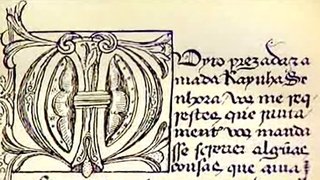 Muyto prezada z a
mada Raynha Se
nhora vos me req
restes que junta
ment vos manda
sse screver algũas
cousas que